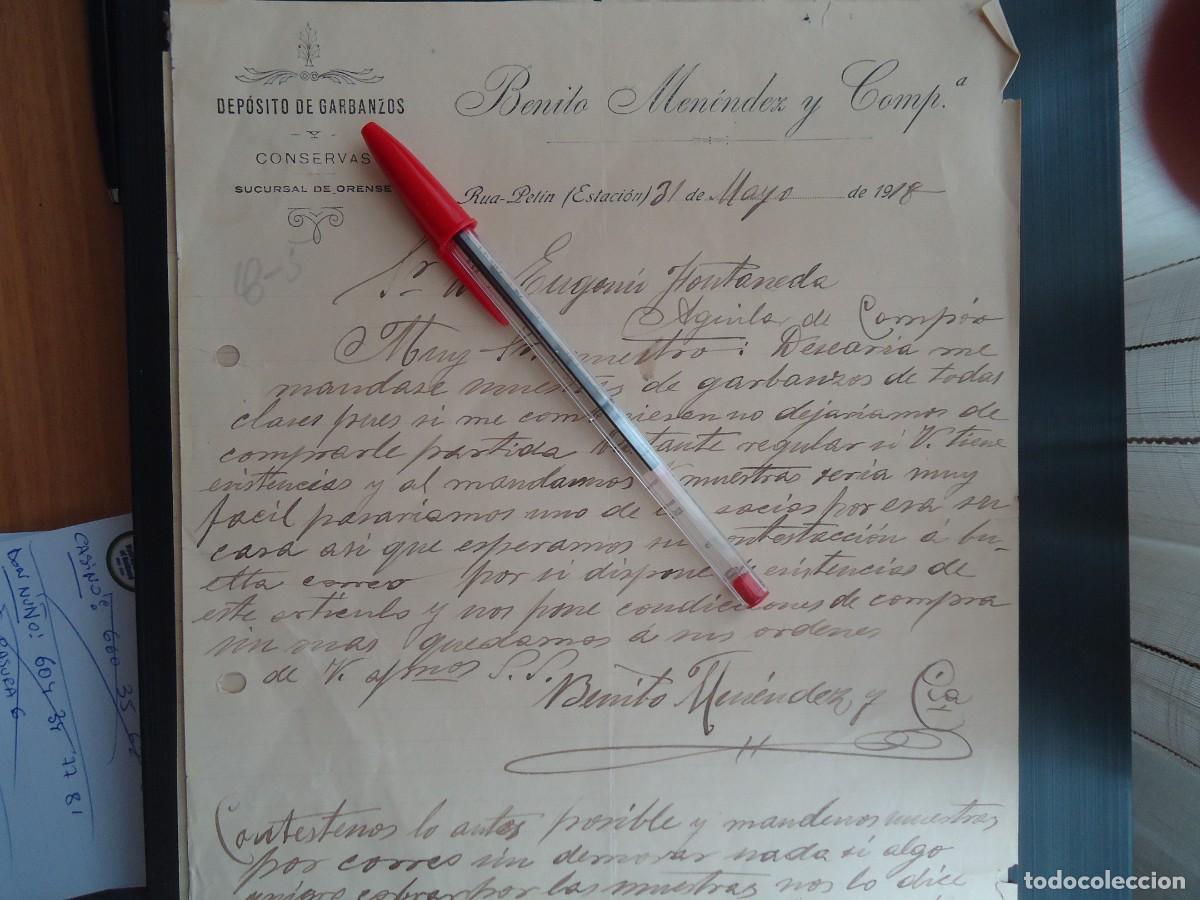 DEPÓSITO DE GARBANZOS
CONSERVAS
SUCURSAL DE ORENSE
Benito Menéndez y Comp.ª
Rua-Petín (Estación) 31 de Mayo de 1918
18-5
Sr. Eugenio Fontaneda
Aguilar de Campóo
Muy Sr. nuestro: Desearia me
mandase muestras de garbanzos de todas
clases pues si me combiniesen no dejariamos de
comprarle partida bastante regular si V. tiene
existencias y al mandarnos muestras seria muy
facil pasariamos uno de socios por esa su
casa asi que esperamos su contestacción á bu-
elta correo por si dispone existencias de
este artículo y nos pone condiciones de compra
sin mas quedamos á sus ordenes
de V. afmos S. S.
Benito Menéndez y Cía
Contestenos lo antes posible y mandenos muestras
por correo sin demorar nada si algo
quiere cobrar por las muestras nos lo dice
CASINO: 600 35 62
DON NUÑO: 604 34 77 81
BASURA 6
todocoleccion